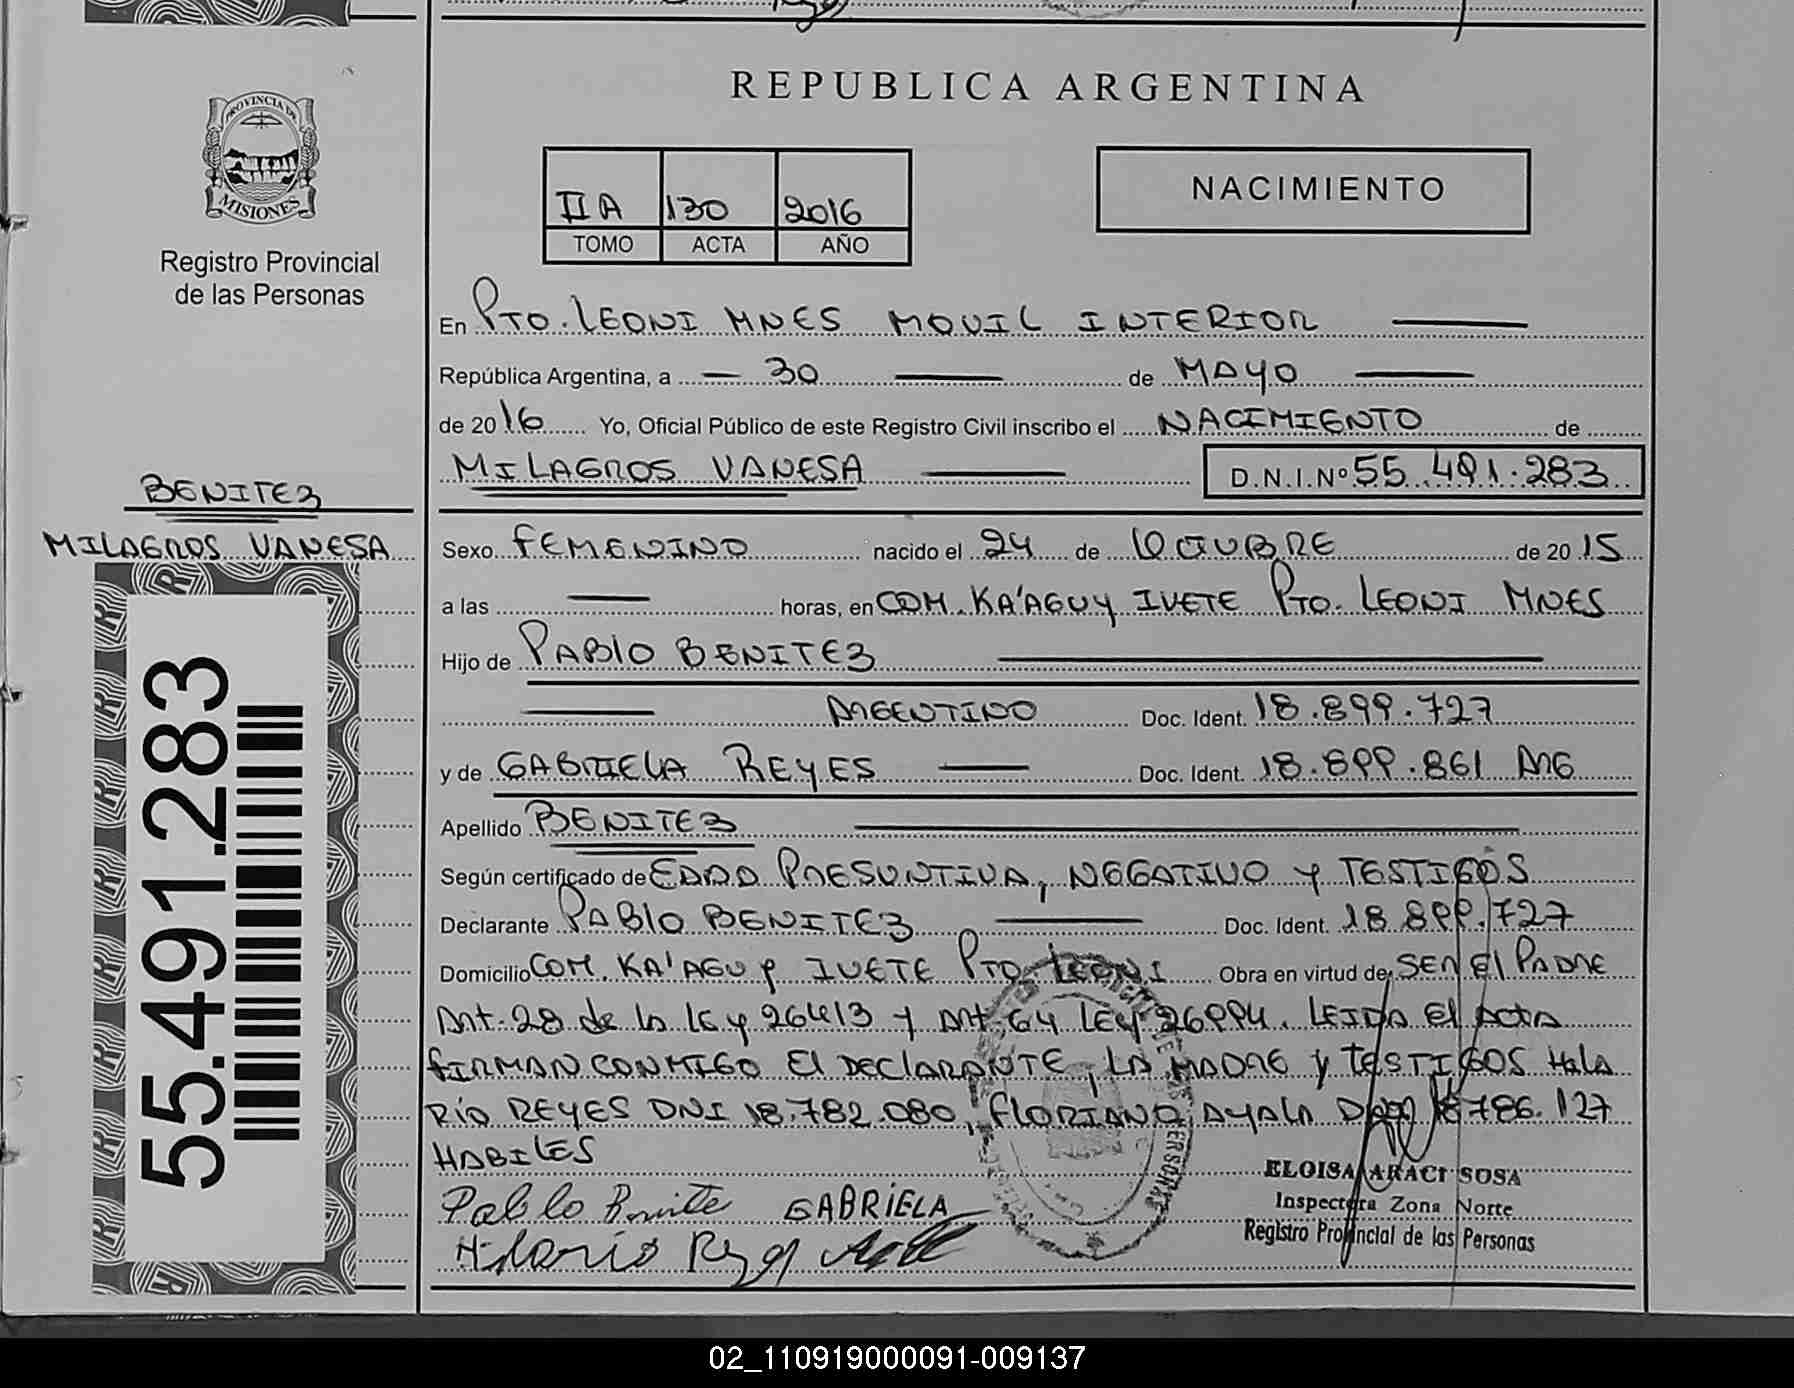 REPUBLICA ARGENTINA
PROVINCIA DE
MISIONES
Registro Provincial
de las Personas
IIA 130 2016
TOMO ACTA AÑO
NACIMIENTO
En PTO. LEONI MNES MOVIL INTERIOR
República Argentina, a — 30 — de MAYO —
de 2016 Yo, Oficial Público de este Registro Civil inscribo el NACIMIENTO de
MILAGROS VANESA — D.N.I.Nº 55.491.283
BENITEZ
MILAGROS VANESA
Sexo FEMENINO nacido el 24 de OCTUBRE de 2015
a las — horas, en COM. KA'AGUY IVETE PTO. LEONI MNES
Hijo de PABLO BENITEZ —
— ARGENTINO Doc. Ident. 18.899.727
y de GABRIELA REYES — Doc. Ident. 18.899.861 ARG
Apellido BENITEZ —
Según certificado de EDAD PRESUNTIVA, NEGATIVO Y TESTIGOS
Declarante PABLO BENITEZ — Doc. Ident. 18.899.727
Domicilio COM. KA'AGUY IVETE PTO. LEONI Obra en virtud de SER El PADRE
Art. 28 de la Ley 26413 y Art. 64 LEY 26994. LEIDA El Acta
FIRMAN CONMIGO El DEClARANTE, LA MADRE Y TESTIGOS HilA
RÍO REYES DNI 18.782.080, FLORIANO AYALA DNI 18786.127
HABILES
Pablo Benite GABRIELA
Hilario Reyes
ELOISA ARACI SOSA
Inspectora Zona Norte
Registro Provincial de las Personas
55.491.283
02_110919000091-009137